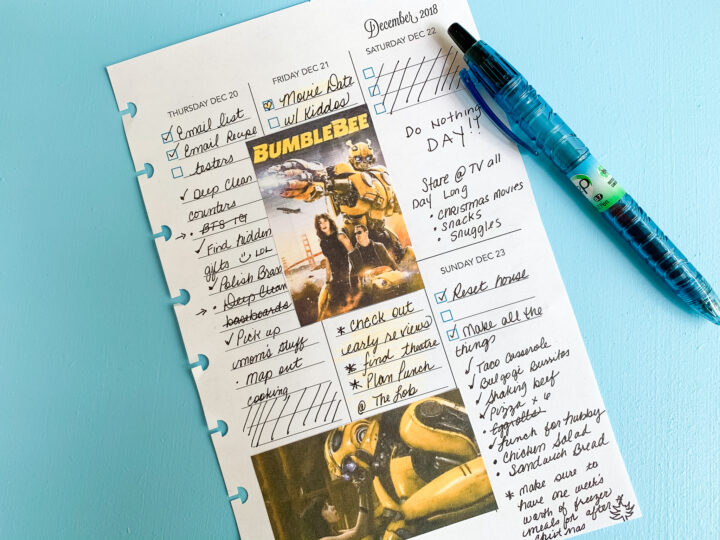 December 2018
THURSDAY DEC 20
Email list
Email Recipe
testers
Deep Clean
counters
BTS IG
Find hidden
gifts LOL
Polish Brass
Deep Clean
baseboards
Pick up
mom's stuff
Map out
cooking
FRIDAY DEC 21
Movie Date
w/ Kiddos
BUMBLEBEE
* Check out
early reviews
* find theatre
* Plan Punch
@ The Lob
SATURDAY DEC 22
Do Nothing
DAY!!
Stare @ TV all
Day Long
• Christmas movies
• Snacks
• Snuggles
SUNDAY DEC 23
Reset house
Make all the
things
Taco Casserole
Bulgogi Burritos
Shaking beef
Pizza x 6
Eggrolls
Lunch for hubby
• Chicken Salad
• Sandwich Bread
* make sure to
have one week's
worth of freezer
meals for after
Christmas